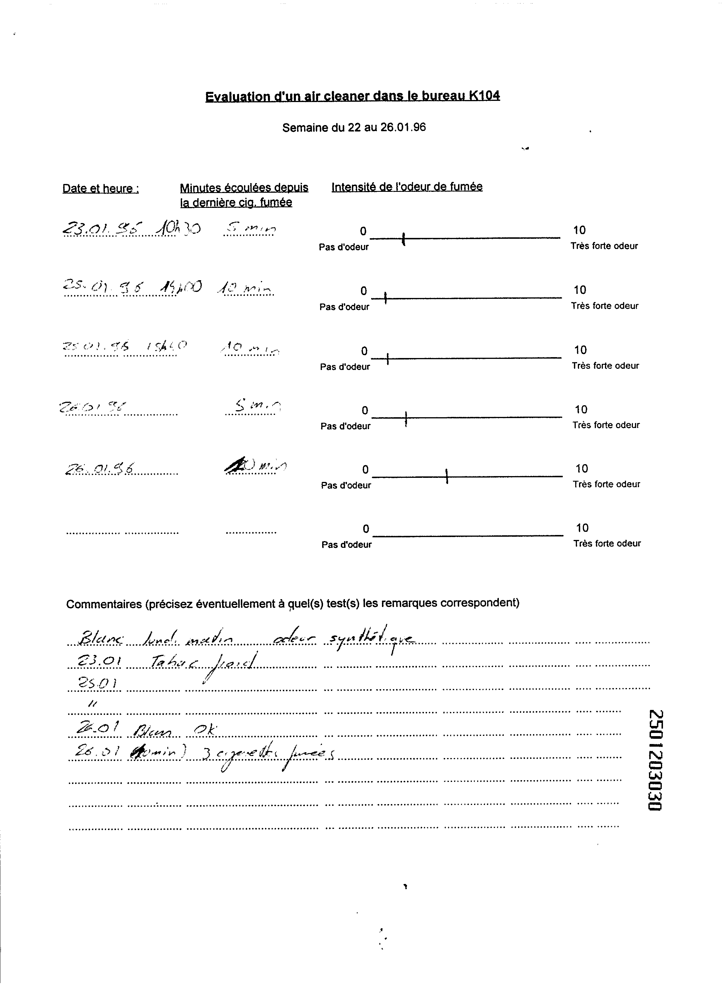 Evaluation d'un air cleaner dans le bureau K104
Semaine du 22 au 26.01.96
Date et heure : Minutes écoulées depuis la dernière cig. fumée Intensité de l'odeur de fumée
23.01.96 10h30 5 min 0 10
Pas d'odeur Très forte odeur
25.01.96 14h00 10 min 0 10
Pas d'odeur Très forte odeur
25.01.96 10 min 0 10
Pas d'odeur Très forte odeur
26.01.96 5 min 0 10
Pas d'odeur Très forte odeur
26.01.96 min 0 10
Pas d'odeur Très forte odeur
0 10
Pas d'odeur Très forte odeur
Commentaires (précisez éventuellement à quel(s) test(s) les remarques correspondent)
Blanc lundi matin odeur synthétique
23.01 Tabac froid
25.01
"
26.01 Blanc OK
26.01 min) 3 cigarettes fumées
2501203030